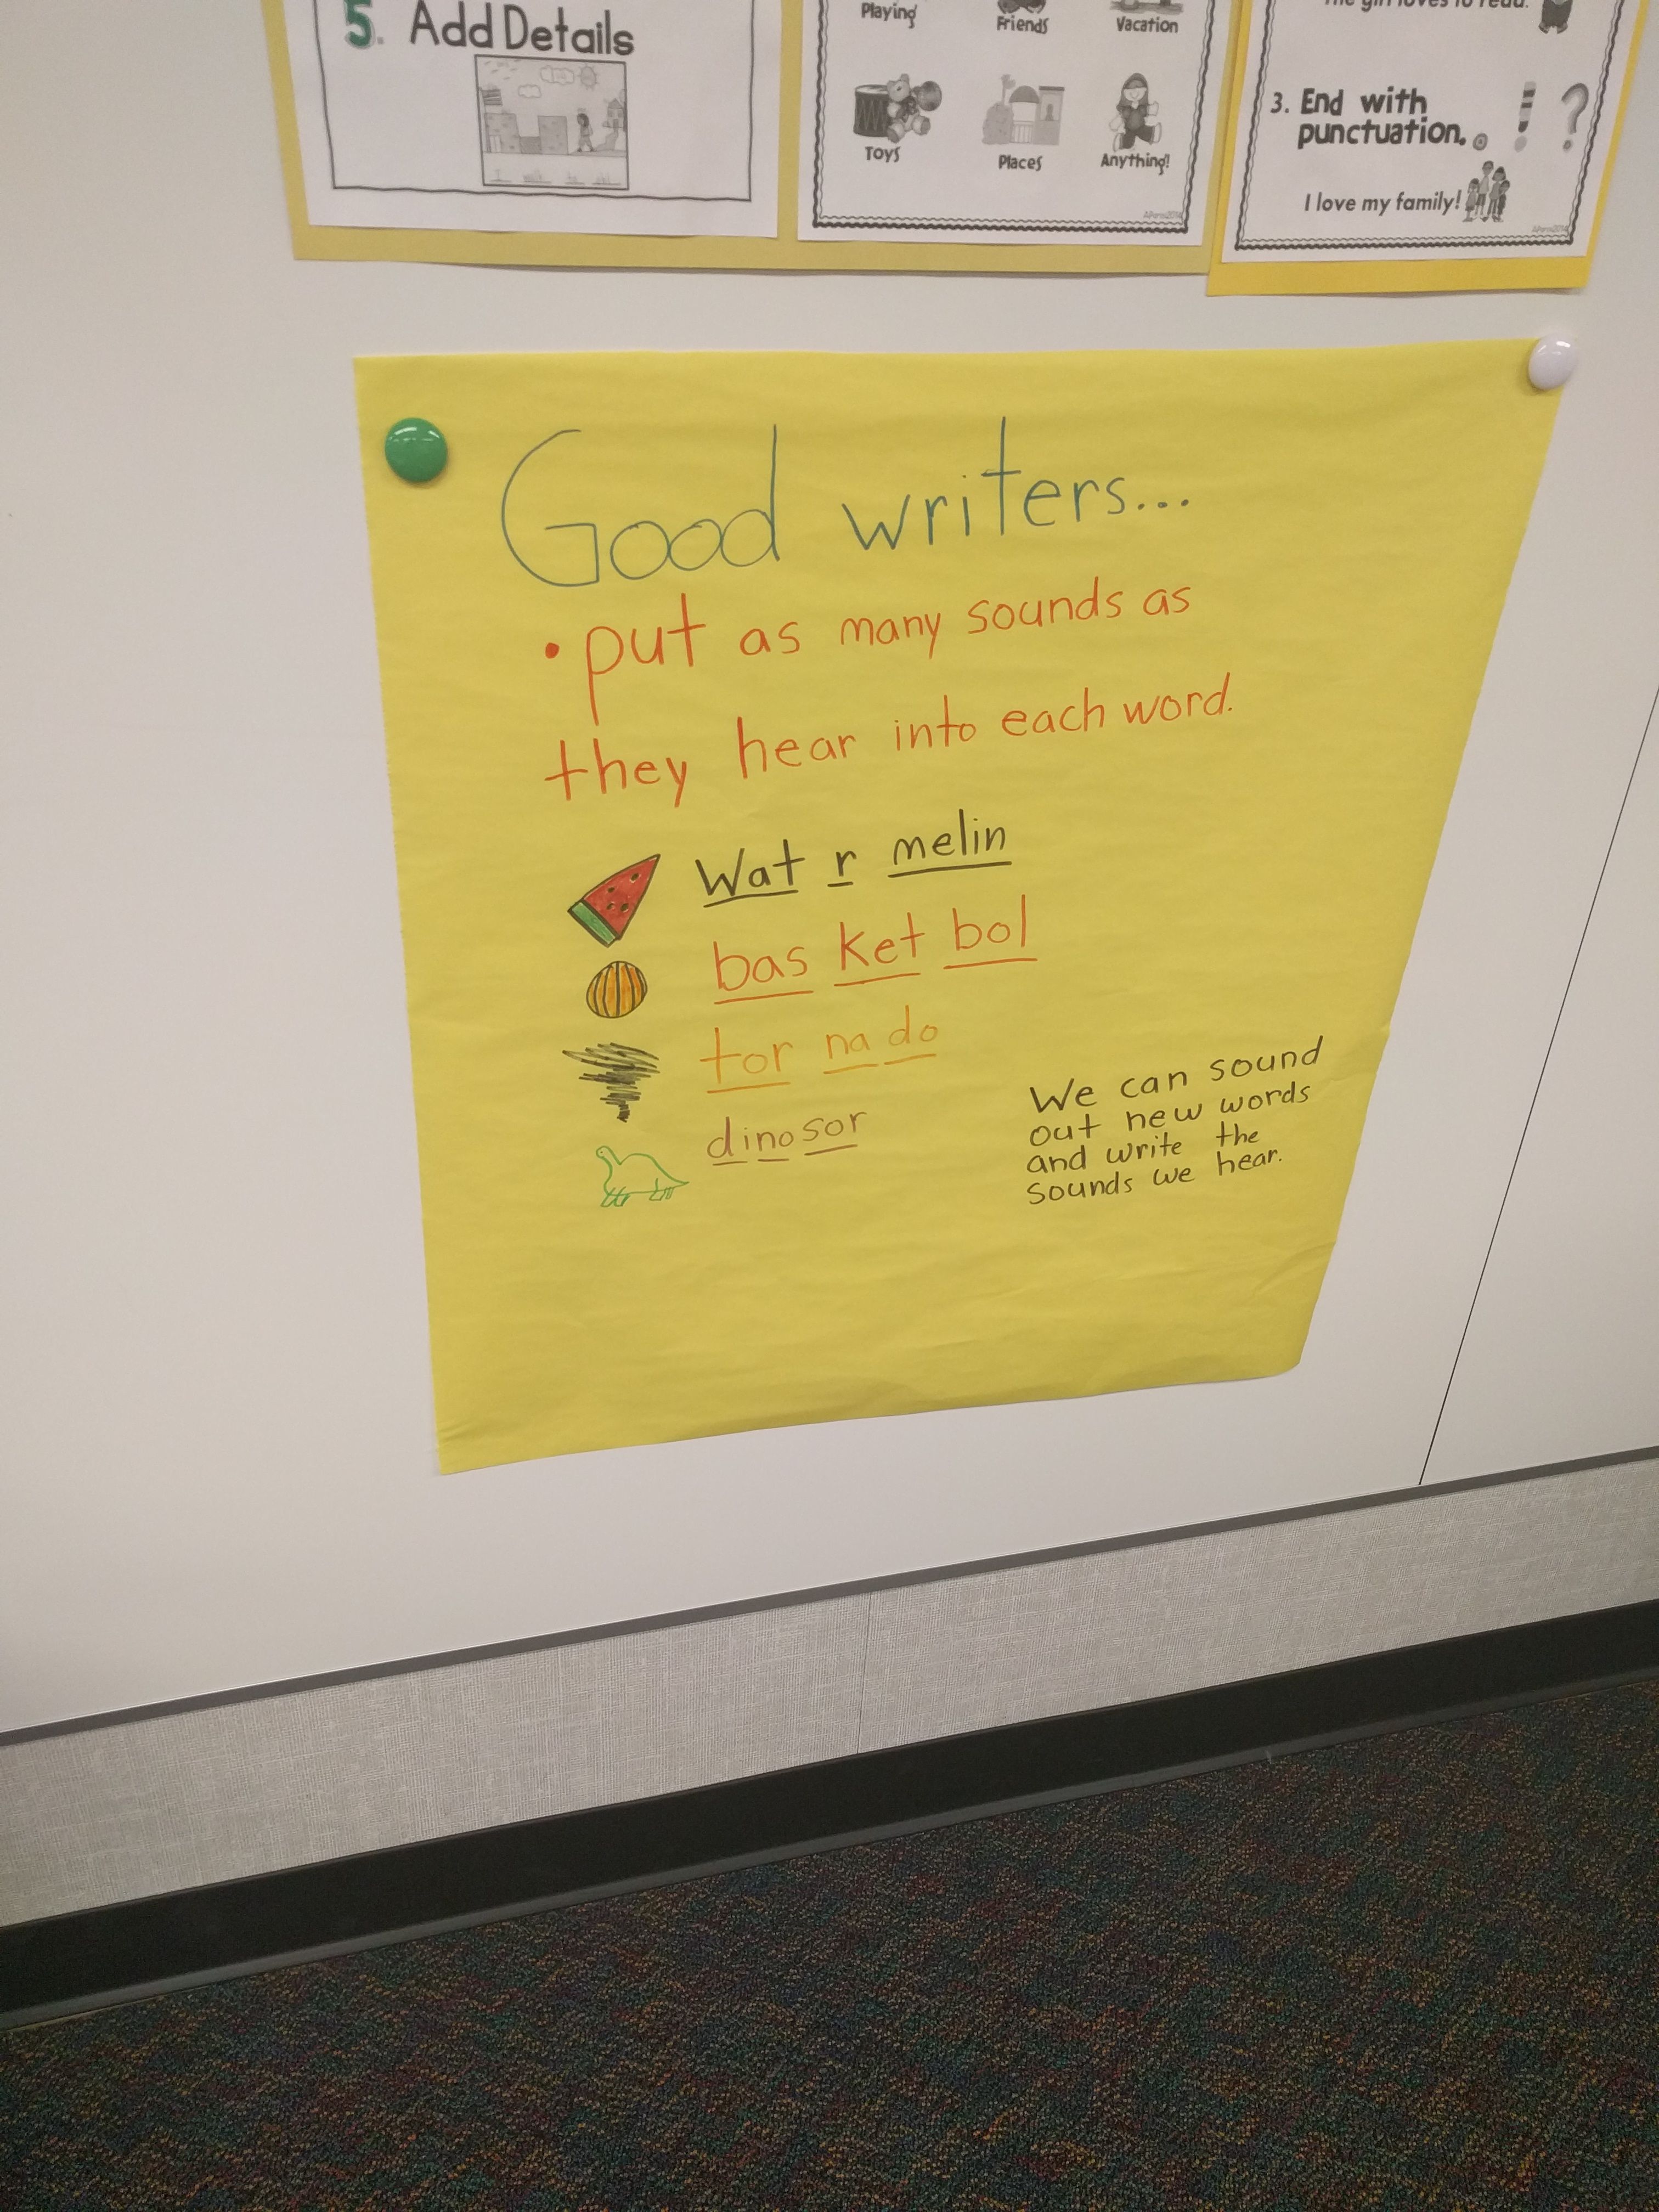 5. Add Details
Playing Friends Vacation
Toys Places Anything!
The girl loves to read.
3. End with
punctuation. . ! ?
I love my family!
Good writers...
• put as many sounds as
they hear into each word.
Wat r melin
bas ket bol
tor na do
dinosor
We can sound
out new words
and write the
sounds we hear.